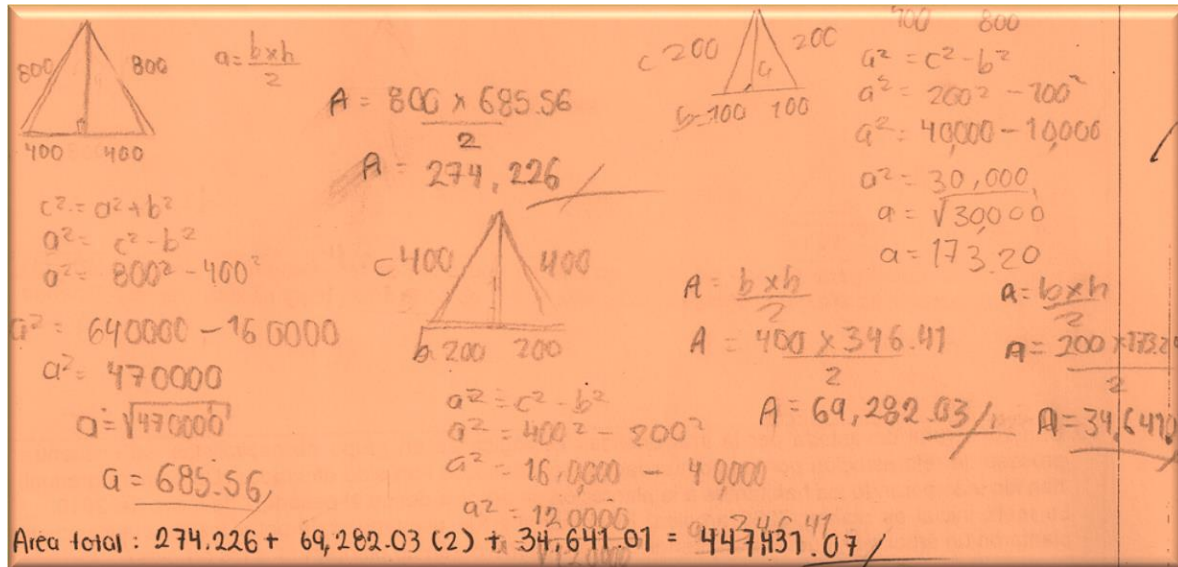 800 800
400 400
a = b x h / 2
A = 800 x 685.56 / 2
A = 274,226
c² = a² + b²
a² = c² - b²
a² = 800² - 400²
a² = 640000 - 160000
a² = 470000
a = √470000
a = 685.56
c 400 400
b 200 200
a² = c² - b²
a² = 400² - 200²
a² = 160,000 - 40,000
a² = 120000
√120000
a = 346.41
A = b x h / 2
A = 400 x 346.41 / 2
A = 69,282.03
c 200 200
a
b-100 100
800
a² = c² - b²
a² = 200² - 100²
a² = 40,000 - 10,000
a² = 30,000
a = √30,000
a = 173.20
a = b x h / 2
A = 200 x 173.2 / 2
Area total : 274.226 + 69,282.03 (2) + 34,641.01 = 447,431.07